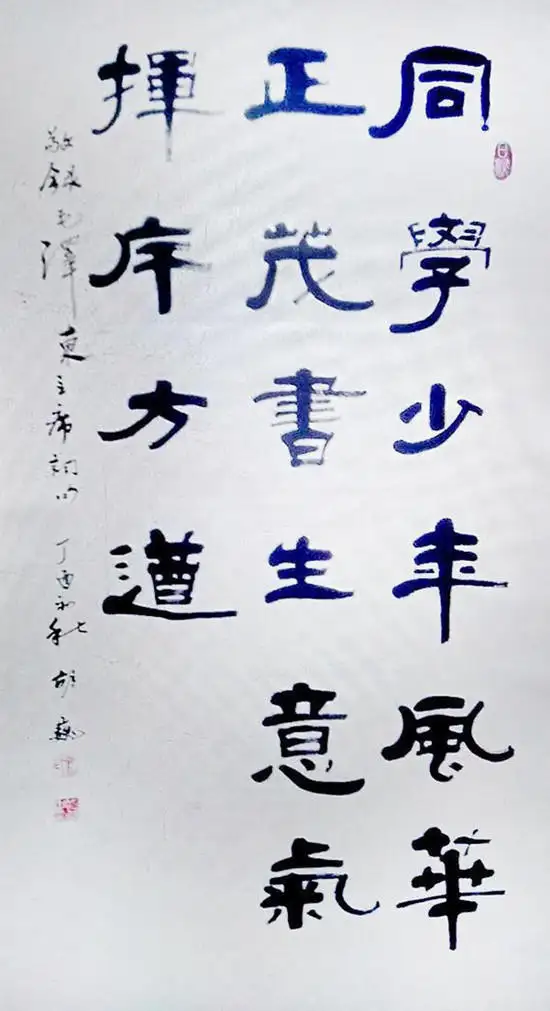 同學少年風華
正茂書生意氣
揮斥方遒
敬錄毛澤東主席詞句 丁酉初秋 胡